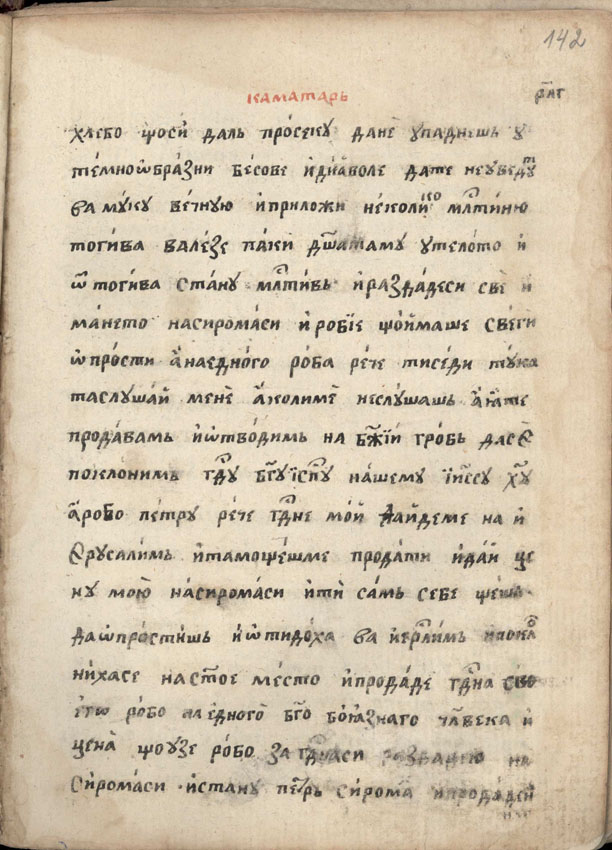 142
каматарь
рмг
хлебо що си́ даль просекꙋ да не ꙋпаднешь ꙋ
темноѡбразни бесове и диаволе да те не ꙋведꙋт
ва мꙋкꙋ вечнꙋю и приложи неколико млⷭтиню
тогива валезе паки дш҃а тамꙋ ꙋ тело то и
ѿ тогива станꙋ млⷭтивь и раздаде си све и
мането на сиромаси и робїе що имаше свеги
ѡпрости а на едного роба рече ти седи тꙋка
та слꙋшай мене ако ли ме не слꙋшашь а ꙗ те
продавамь и ѡтводимь на бж҃їи гробь да се
поклонимь гдⷭꙋ бг҃ꙋ і спⷭꙋ нашемꙋ їисꙋ хⷭꙋ
а робо петрꙋ рече гдⷭне мой найдеме на и
ерꙋсалимь и тамо щешме продати и дай це
нꙋ мою на сиромаси и ти самь себе щешь
да ѡпростишь и ѡтидоха ва иерⷭлимь и покло
ниха се на стⷭое место и продаде гдⷭна сво
его робо на едного бг҃о боꙗзнаго чл҃века и
цена що ꙋзе робо за гдⷭна си раздадию на
сиромаси и станꙋ петрь сирома и продаден